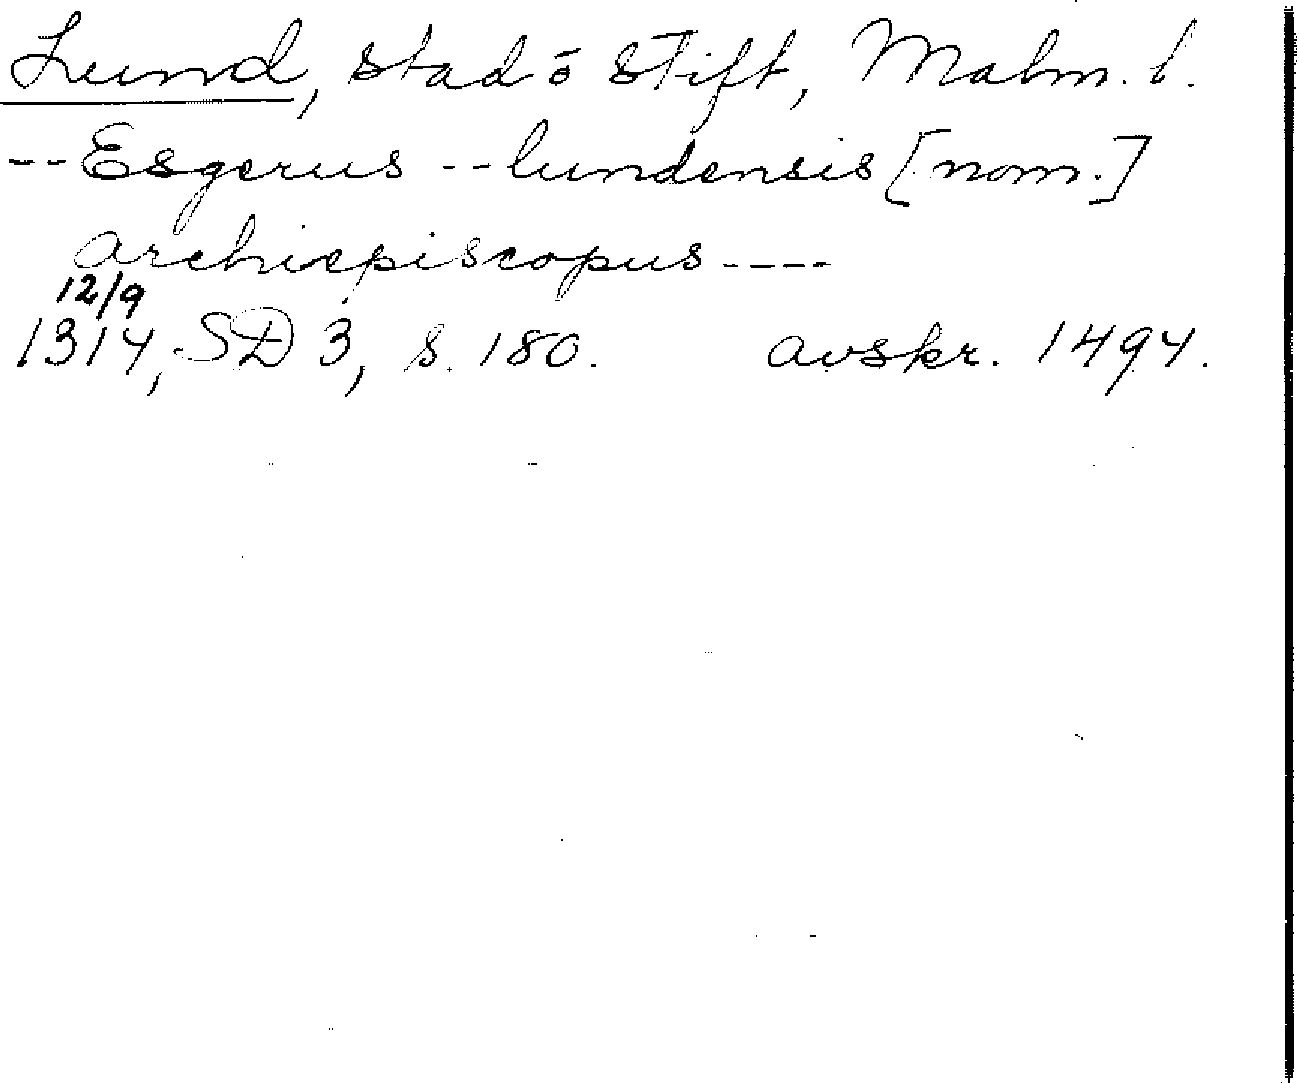 Lund, stad ō stift, Malm. l.
-- Esgerus -- lundensis [nom.]
archiepiscopus ----
12/9
1314, SD 3, s. 180. avskr. 1494.